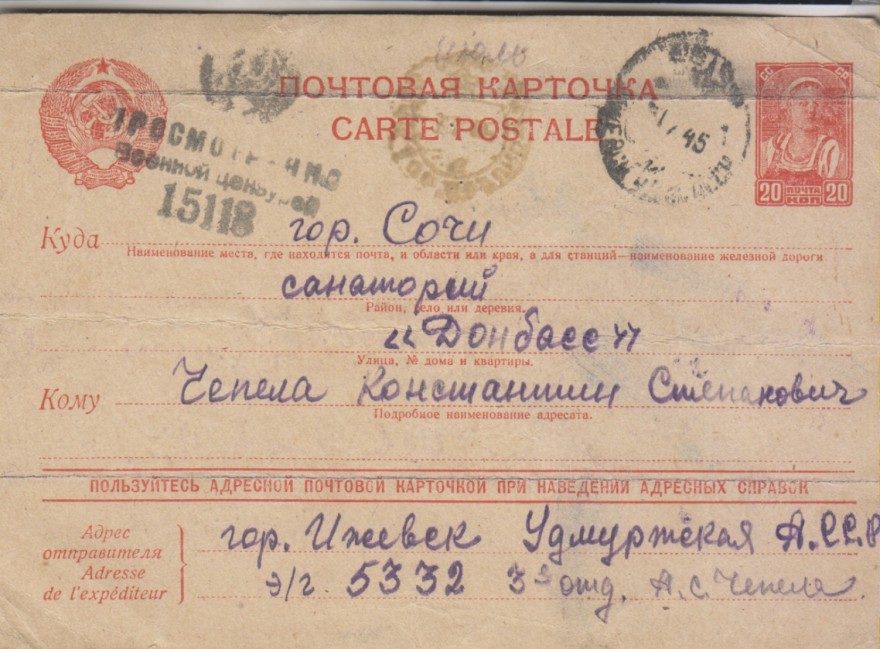 июль
ПОЧТОВАЯ КАРТОЧКА
CARTE POSTALE
СС СР
20 ПОЧТА 20
КОП
45
Военной цензурой
15118
Куда гор. Сочи
Наименование места, где находится почта, и области или края, а для станций—наименование железной дороги
санаторий
Район, село или деревня.
„Донбасс"
Улица, № дома и квартиры.
Кому Чепела Константин Степанович
Подробное наименование адресата.
ПОЛЬЗУЙТЕСЬ АДРЕСНОЙ ПОЧТОВОЙ КАРТОЧКОЙ ПРИ НАВЕДЕНИИ АДРЕСНЫХ СПРАВОК
Адрес
отправителя
Adresse
de l'expéditeur
гор. Ижевск Удмуртская А.ССР
э/г. 5332 3е отд. А.С. Чепела